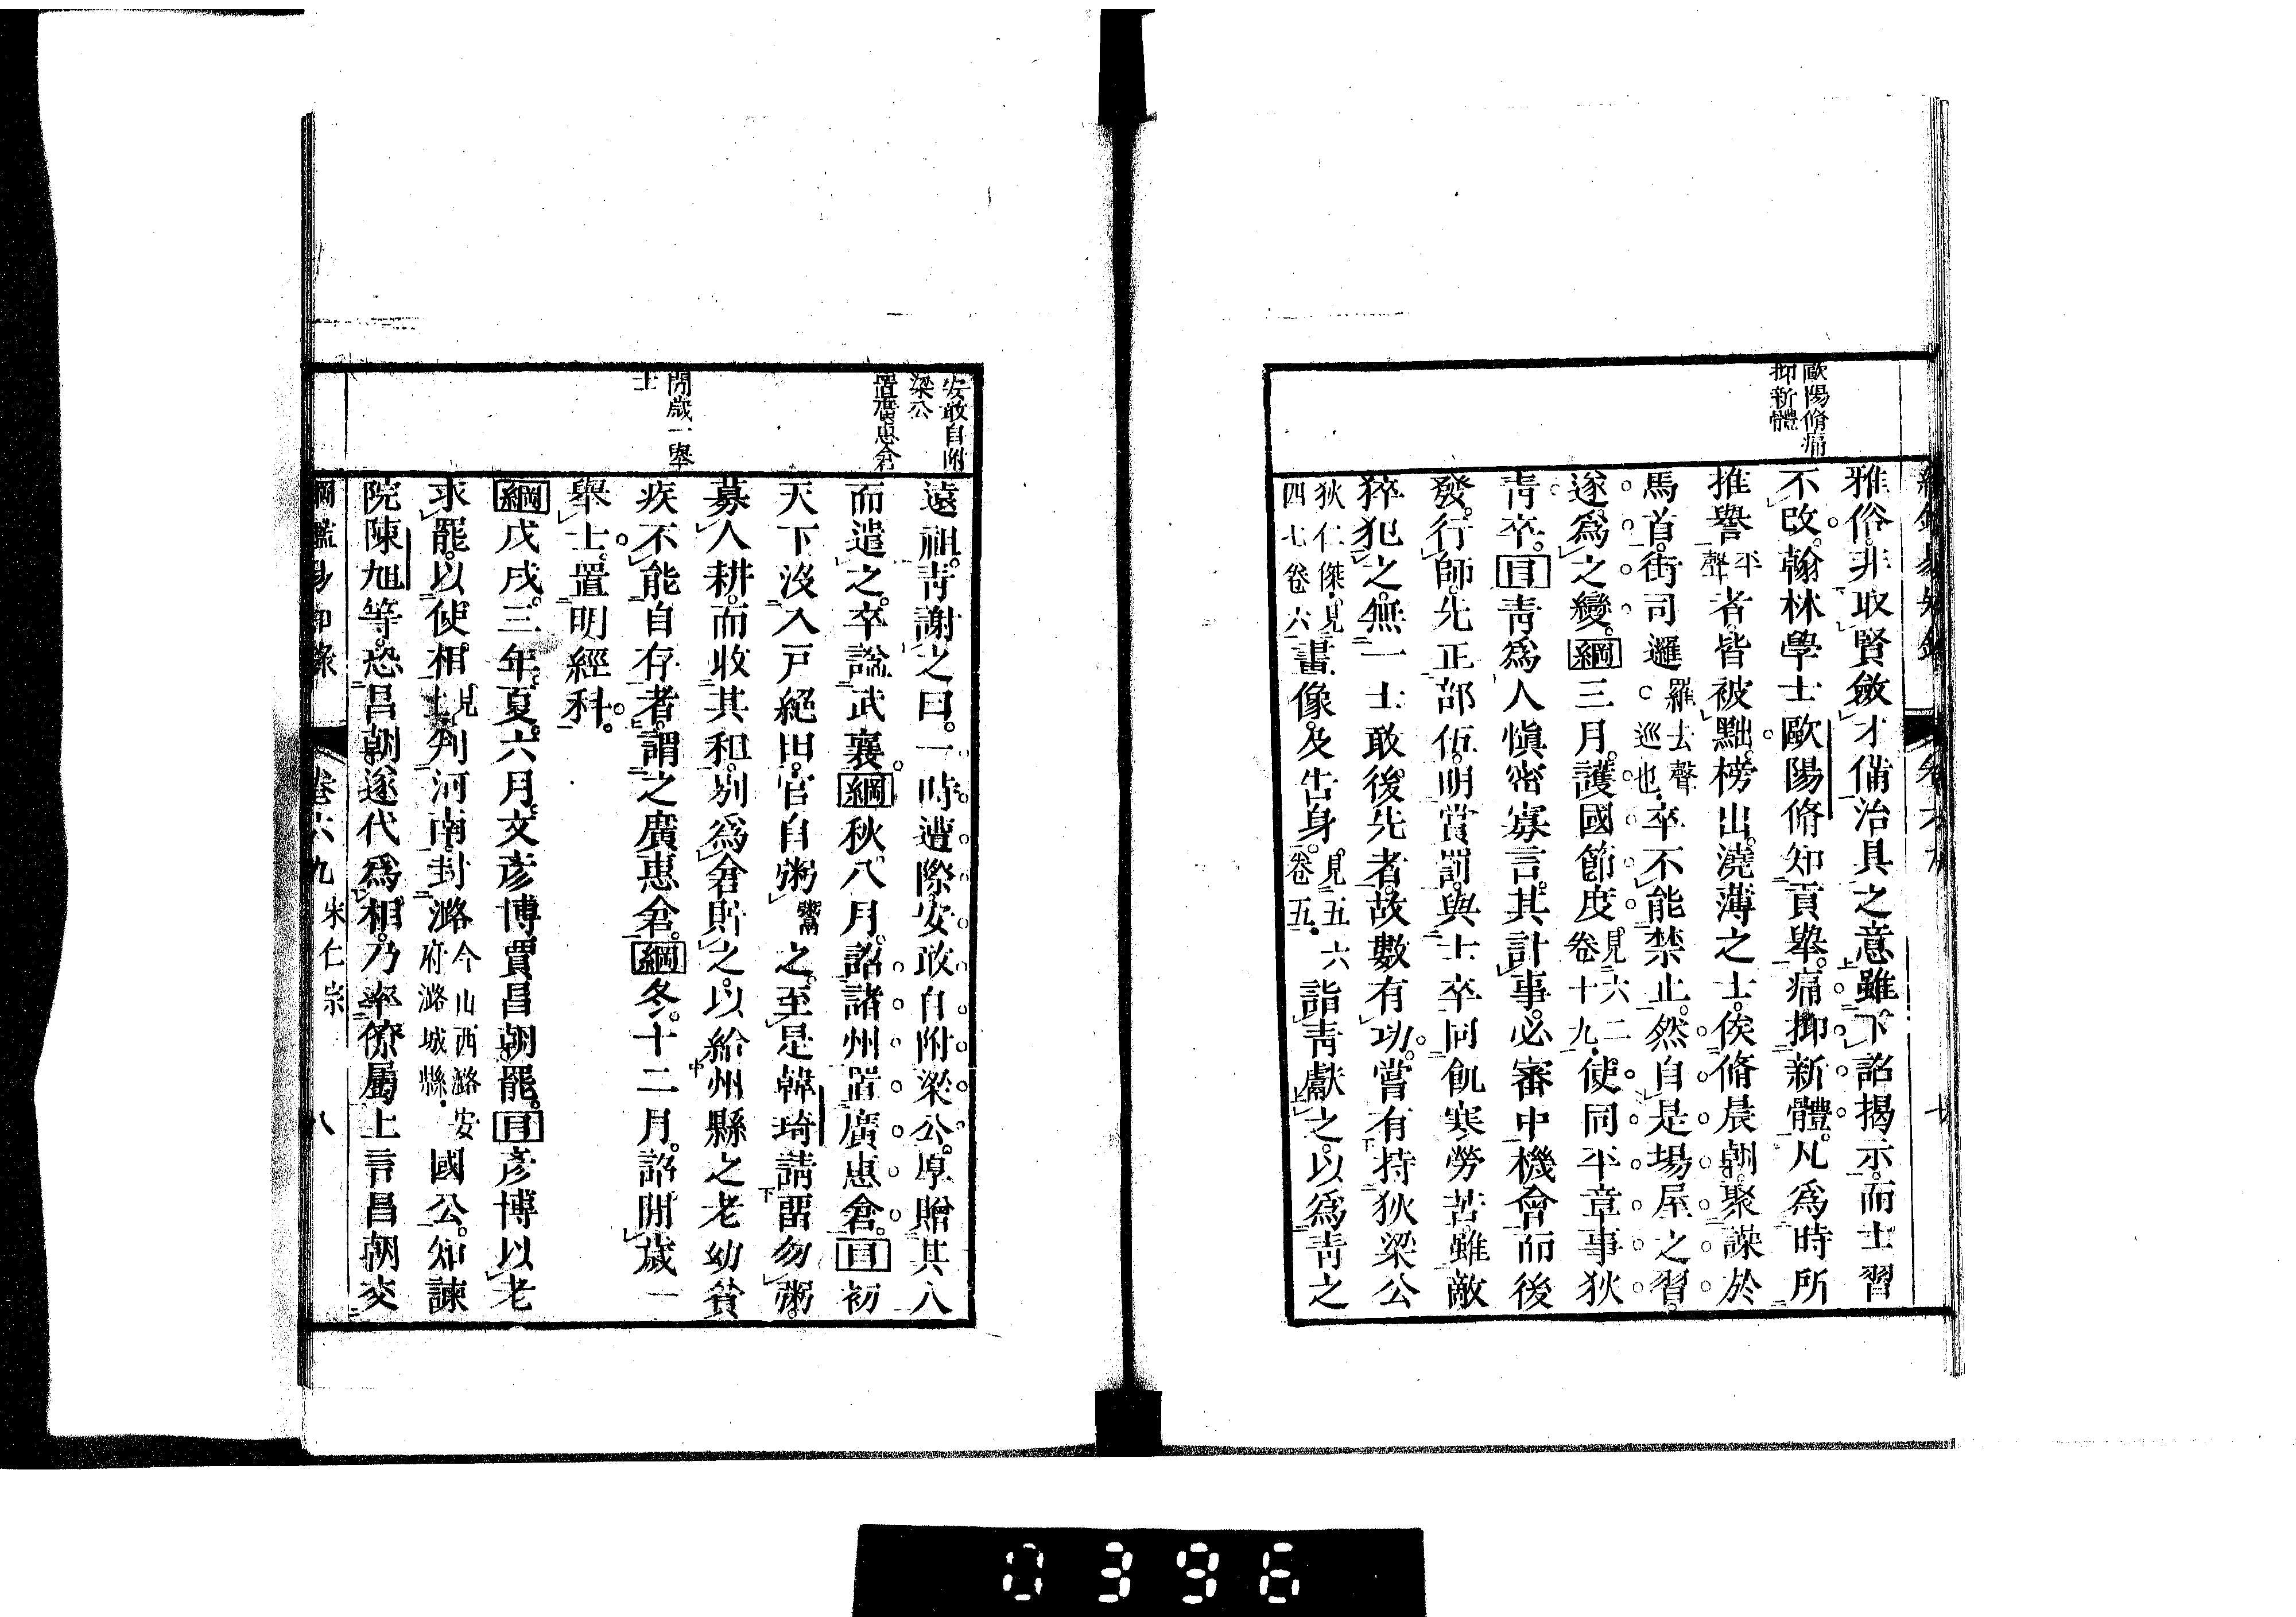 歐陽脩痛
抑新體
雅俗。非取賢斂才備治具之意雖下詔揭示。而士習
不改。翰林學士歐陽脩知貢舉。痛抑新體。凡爲時所
推譽平聲者。皆被黜。榜出。澆薄之士。俟脩晨朝。聚譟於
馬首。街司邏羅去聲。巡也。卒不能禁止。然自是場屋之習。
遂爲之變。綱三月。護國節度見六二卷十九。使同平章事狄
靑卒。目靑爲人愼密寡言。其計事。必審中機會而後
發。行師。先正部伍。明賞罰。與士卒同飢寒勞苦。雖敵
猝犯之。無一士敢後先者。故數有功。嘗有持狄梁公
狄仁傑。見四七卷六畫像。及告身。見五六卷五。詣靑獻之。以爲靑之
安敢自附
梁公
置廣惠倉
閒歲一舉
士
遠祖。靑謝之曰。一時遭際。安敢自附梁公。厚贈其人
而遣之。卒諡武襄。綱秋。八月。詔諸州置廣惠倉。目初
天下沒入戸絕田。官自粥鬻之。至是韓琦請畱勿粥。
募人耕。而收其租。別爲倉貯之。以給州縣之老幼貧
疾不能自存者。謂之廣惠倉。綱冬。十二月。詔閒歲一
舉士。置明經科。
綱戊戌。三年。夏。六月。文彥博賈昌朝罷。目彥博以老
求罷。以使相見上。判河南。封潞今山西潞安府潞城縣。國公。知諫
院陳旭等。恐昌朝遂代爲相。乃率僚屬上言昌朝交
綱鑑易知錄 卷六九 宋仁宗 八
0396